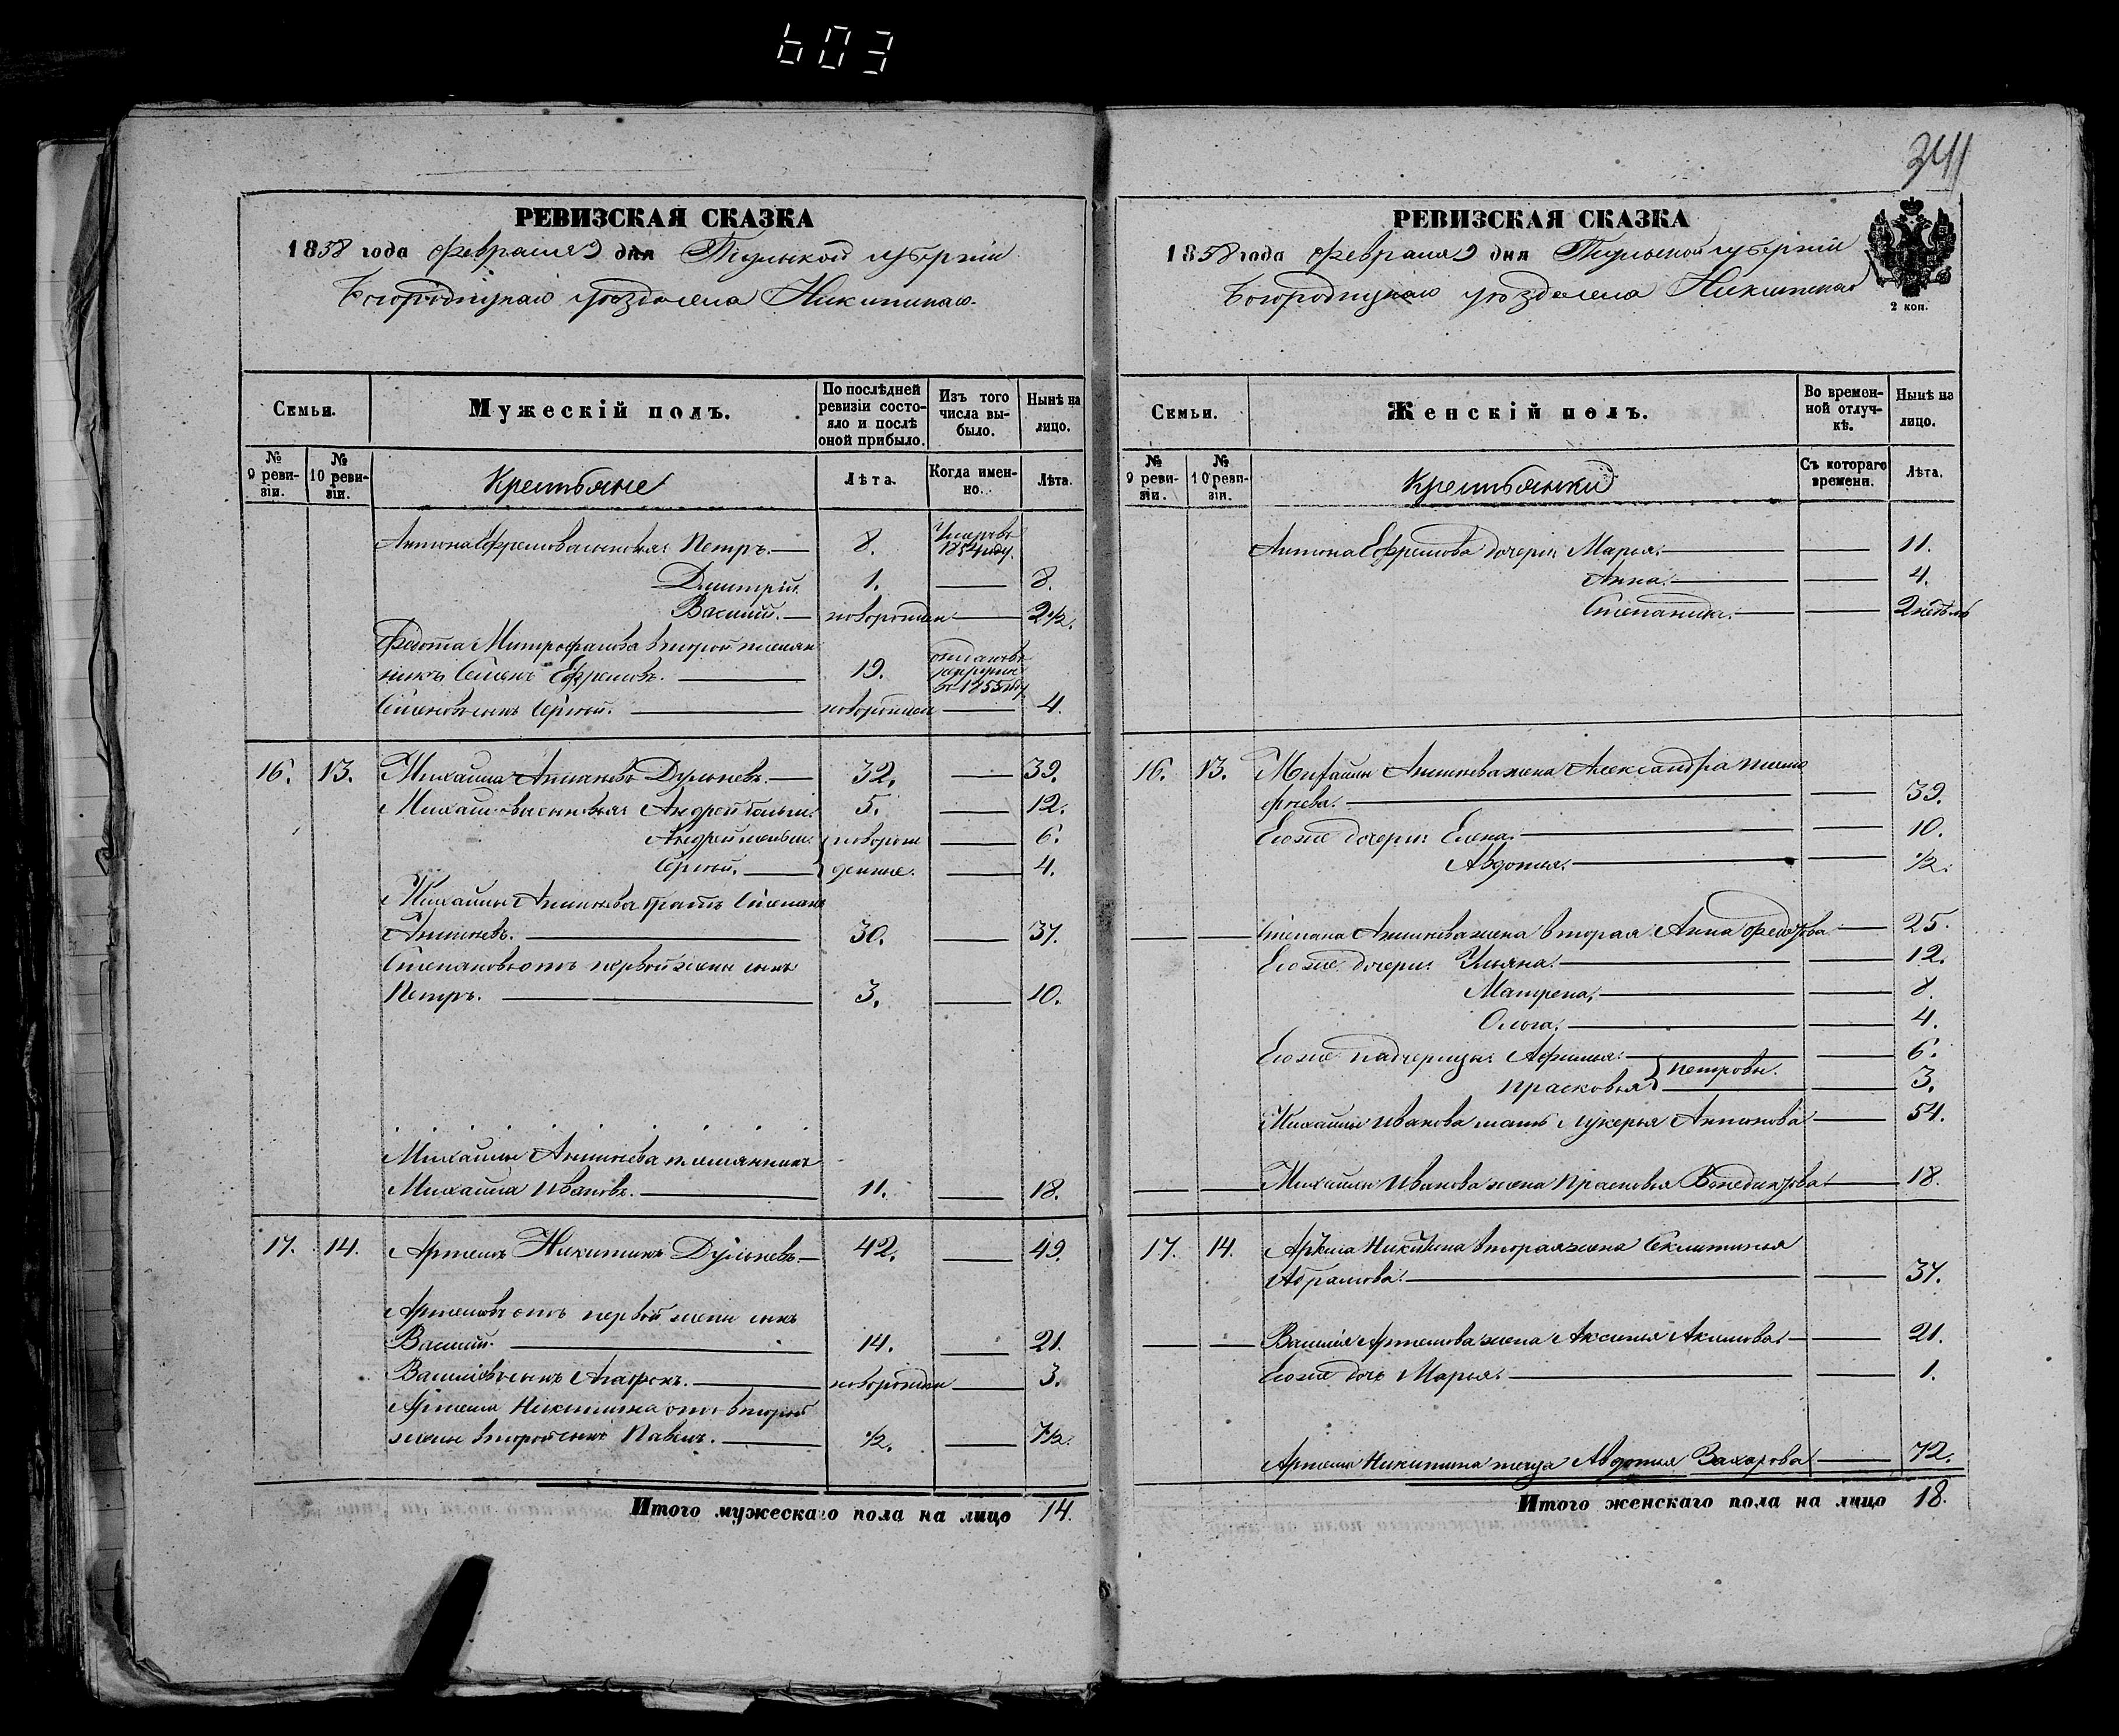 603
341
РЕВИЗСКАЯ СКАЗКА
1858 года февраля 9 дня Тульской губернiи
Богородицкаго уѣзда села Никитскаго
Семьи.
Мужескiй полъ.
По послѣдней ревизiи состояло и послѣ оной прибыло.
Изъ того числа выбыло.
Нынѣ на лицо.
№ 9 ревизiи.
№ 10 ревизiи.
Крестьяне
Лѣта.
Когда именно.
Лѣта.
Антона Ефремова сыновья: Петръ. 8. Умеръ въ 1854 году.
Дмитрiй. 1. 8.
Василiй. новорожден 2 1/2.
Федота Митрофанова второй племян
никъ Семенъ Ефремовъ. 19. отданъ въ рекруты въ 1855 году
Семеновъ сынъ Сергѣй. новорожден 4.
16. 13. Михайла Дульневъ. 32. 39.
Михайловы сыновья: Андрей больш. 5. 12.
Андрей меньш. новорож 6.
Сергѣй. денные. 4.
Михайлы братъ Степанъ
30. 37.
Степановъ отъ первой жены сынъ
Петръ. 3. 10.
Михайлы племянникъ
Михайла Ивановъ. 11. 18.
17. 14. Артемъ Никитинъ Дульневъ 42. 49.
Артемовъ отъ первой жены сынъ
Василiй. 14. 21.
Васильевъ сынъ Агафонъ. новорожден 3.
Артема Никитина отъ второй
жены второй сынъ Павелъ. 1/2. 7 1/2.
Итого мужескаго пола на лицо 14.
РЕВИЗСКАЯ СКАЗКА
1858 года февраля 9 дня Тульской губернiи
Богородицкаго уѣзда села Никитскаго
2 коп.
Семьи.
Женскiй полъ.
Во временной отлучкѣ.
Нынѣ на лицо.
№ 9 ревизiи.
№ 10 ревизiи.
Крестьянки
Съ котораго времени.
Лѣта.
Антона Ефремова дочери: Марья. 11.
Анна. 4.
Степанида. 2 недѣль
16. 13. Михайлы жена Александра Тимо
фѣева. 39.
Его же дочери: Елена. 10.
Авдотья. 1/2.
Степана жена вторая Анна Федотова 25.
Его же дочери: Ульяна. 12.
Матрена, 8.
Ольга. 4.
Его же падчерицы: Афимья. 6.
Прасковья Петровы. 3.
Михайлы Иванова мать Лукерья Антонова 54.
Михайлы Иванова жена Прасковья Венедиктова 18.
17. 14. Артема Никитина вторая жена Секлитинья
Абрамова. 37.
Василiя Артемова жена Аксинья Акимова 21.
Его же дочь Марья. 1.
Артема Никитина теща Авдотья Захарова 72.
Итого женскаго пола на лицо 18.